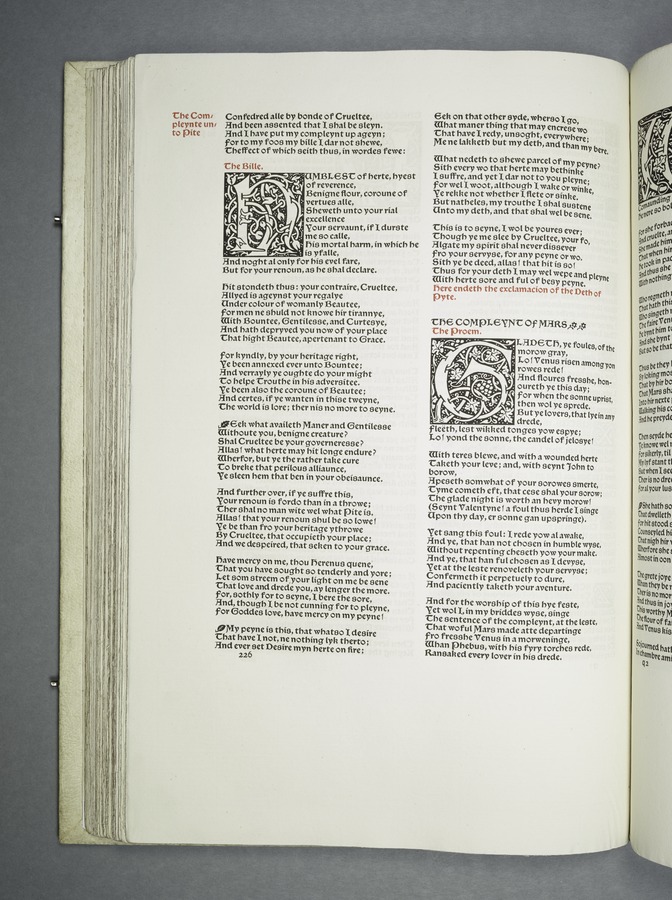 The Com-
pleynte un-
to Pite
Confedred alle by bonde of Crueltee,
And been assented that I shal be sleyn.
And I have put my compleynt up ageyn;
For to my foos my bille I dar not shewe,
Theffect of which seith thus, in wordes fewe:
The Bille.
HUMBLEST of herte, hyest
of reverence,
Benigne flour, coroune of
vertues alle,
Sheweth unto your rial
excellence
Your servaunt, if I durste
me so calle,
His mortal harm, in which he
is yfalle,
And noght al only for his evel fare,
But for your renoun, as he shal declare.
Hit stondeth thus: your contraire, Crueltee,
Allyed is ageynst your regalye
Under colour of womanly Beautee,
For men ne shuld not knowe hir tirannye,
With Bountee, Gentilesse, and Curtesye,
And hath depryved you now of your place
That hight Beautee, apertenant to Grace.
For kyndly, by your heritage right,
Ye been annexed ever unto Bountee;
And verrayly ye oughte do your might
To helpe Trouthe in his adversitee.
Ye been also the coroune of Beautee;
And certes, if ye wanten in thise tweyne,
The world is lore; ther nis no more to seyne.
Eek what availeth Maner and Gentilesse
Withoute you, benigne creature?
Shal Crueltee be your governeresse?
Allas! what herte may hit longe endure?
Wherfor, but ye the rather take cure
To breke that perilous alliaunce,
Ye sleen hem that ben in your obeisaunce.
And further over, if ye suffre this,
Your renoun is fordo than in a throwe;
Ther shal no man wite wel what Pite is.
Allas! that your renoun shul be so lowe!
Ye be than fro your heritage ythrowe
By Crueltee, that occupieth your place;
And we despeired, that seken to your grace.
Have mercy on me, thou Herenus quene,
That you have sought so tenderly and yore;
Let som streem of your light on me be sene
That love and drede you, ay lenger the more.
For, sothly for to seyne, I bere the sore,
And, though I be not cunning for to pleyne,
For Goddes love, have mercy on my peyne!
My peyne is this, that whatso I desire
That have I not, ne nothing lyk therto;
And ever set Desire myn herte on fire;
226
Eek on that other syde, wherso I go,
What maner thing that may encrese wo
That have I redy, unsoght, everywhere;
Me ne lakketh but my deth, and than my bere.
What nedeth to shewe parcel of my peyne?
Sith every wo that herte may bethinke
I suffre, and yet I dar not to you pleyne;
For wel I woot, although I wake or winke,
Ye rekke not whether I flete or sinke.
But natheles, my trouthe I shal sustene
Unto my deth, and that shal wel be sene.
This is to seyne, I wol be youres ever;
Though ye me slee by Crueltee, your fo,
Algate my spirit shal never dissever
Fro your servyse, for any peyne or wo.
Sith ye be deed, allas! that hit is so!
Thus for your deth I may wel wepe and pleyne
With herte sore and ful of besy peyne.
Here endeth the exclamacion of the Deth of
Pyte.
THE COMPLEYNT OF MARS
The Proem.
GLADETH, ye foules, of the
morow gray,
Lo! Venus risen among yon
rowes rede!
And floures fresshe, hon-
oureth ye this day;
For when the sonne uprist,
then wol ye sprede.
But ye lovers, that lye in any
drede,
Fleeth, lest wikked tonges yow espye;
Lo! yond the sonne, the candel of jelosye!
With teres blewe, and with a wounded herte
Taketh your leve; and, with seynt John to
borow,
Apeseth somwhat of your sorowes smerte,
Tyme cometh eft, that cese shal your sorow;
The glade night is worth an hevy morow!
(Seynt Valentyne! a foul thus herde I singe
Upon thy day, er sonne gan upspringe).
Yet sang this foul: I rede yow al awake,
And ye, that han not chosen in humble wyse,
Without repenting cheseth yow your make.
And ye, that han ful chosen as I devyse,
Yet at the leste renoveleth your servyse;
Confermeth it perpetuely to dure,
And paciently taketh your aventure.
And for the worship of this hye feste,
Yet wol I, in my briddes wyse, singe
The sentence of the compleynt, at the leste,
That woful Mars made atte departinge
Fro fresshe Venus in a morweninge,
Whan Phebus, with his fyry torches rede,
Ransaked every lover in his drede.